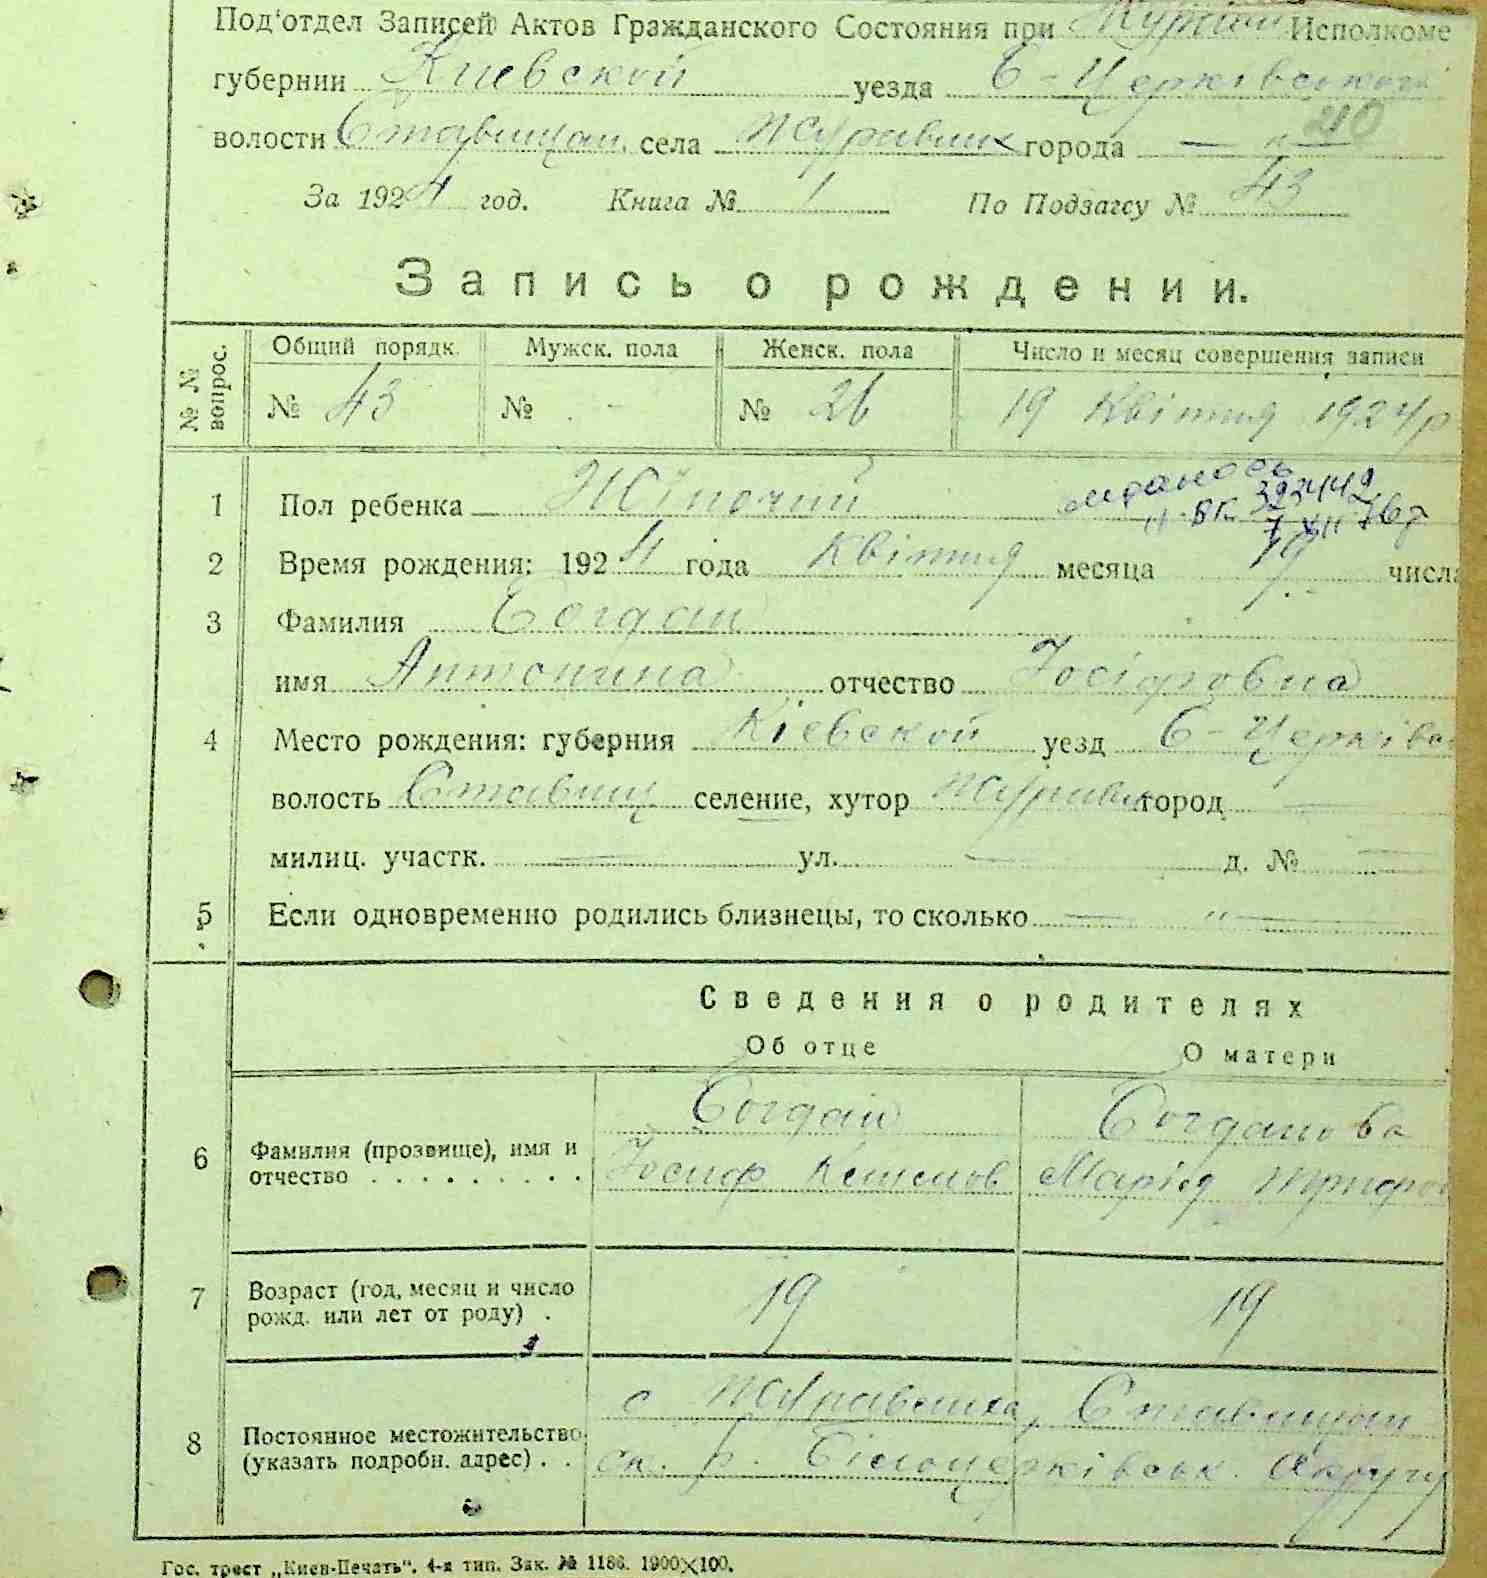 Под'отдел Записей Актов Гражданского Состояния при Исполкоме
губернии Киевской уезда Б-Церківського
волости Ставищан. села Журавлик города — " — 210
За 1924 год. Книга № 1 По Подзагсу № 43
Запись о рождении.
№ № вопрос. Общий порядк. Мужск. пола Женск. пола Число и месяц совершения записи
№ 43 № - № 26 19 Квітня 1924 р
1 Пол ребенка Жіночий
2 Время рождения: 1924 года Квітня месяца 19 числа
3 Фамилия Богдан
имя Антонина отчество Іосіфовна
4 Место рождения: губерния Кіевской уезд Б-Церківс
волость Ставищ селение, хутор Журавлик город —
милиц. участк. — ул. — д. № —
5 Если одновременно родились близнецы, то сколько — " —
Сведения о родителях
Об отце О матери
Богдан Богданова
6 Фамилия (прозвище), имя и
отчество . . . . . . . . . Іосиф Марія Трифон
7 Возраст (год, месяц и число
рожд. или лет от роду) . 19 19
с Журавлиха, Ставищан
8 Постоянное местожительство
(указать подробн. адрес) . . ск. р. Білоцерківськ. Округу
Гос. трест „Киев-Печать“. 4-я тип. Зак. № 1186. 1900×100.